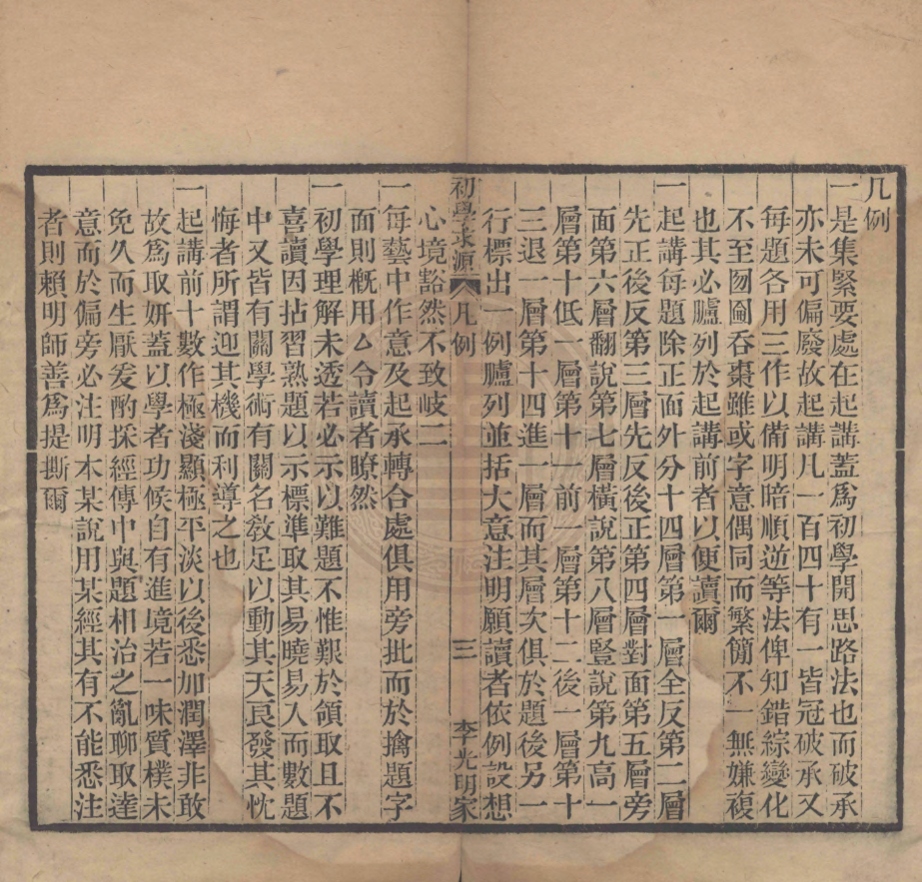 凡例
一是集緊要處在起講蓋爲初學開思路法也而破承
亦未可偏廢故起講凡一百四十有一皆冠破承又
每題各用三作以備明暗順逆等法俾知錯綜變化
不至囫圇吞棗雖或字意偶同而繁簡不一無嫌複
也其必臚列於起講前者以便讀爾
一起講每題除正面外分十四層第一層全反第二層
先正後反第三層先反後正第四層對面第五層旁
面第六層翻說第七層橫說第八層豎說第九高一
層第十低一層第十一前一層第十二後一層第十
三退一層第十四進一層而其層次俱於題後另一
行標出一例臚列並括大意注明願讀者依例設想
心境豁然不致岐二
初學求源 凡例 三 李光明家
一每藝中作意及起承轉合處俱用旁批而於擒題字
面則概用厶令讀者瞭然
一初學理解未透若必示以難題不惟艱於領取且不
喜讀因拈習熟題以示標準取其易曉易入而數題
中又皆有關學術有關名敎足以動其天良發其忱
悔者所謂迎其機而利導之也
一起講前十數作極淺顯極平淡以後悉加潤澤非敢
故爲取妍蓋以學者功候自有進境若一味質樸未
免久而生厭爰酌採經傳中與題相治之亂聊取達
意而於偏旁必注明本某說用某經其有不能悉注
者則賴明師善爲提撕爾